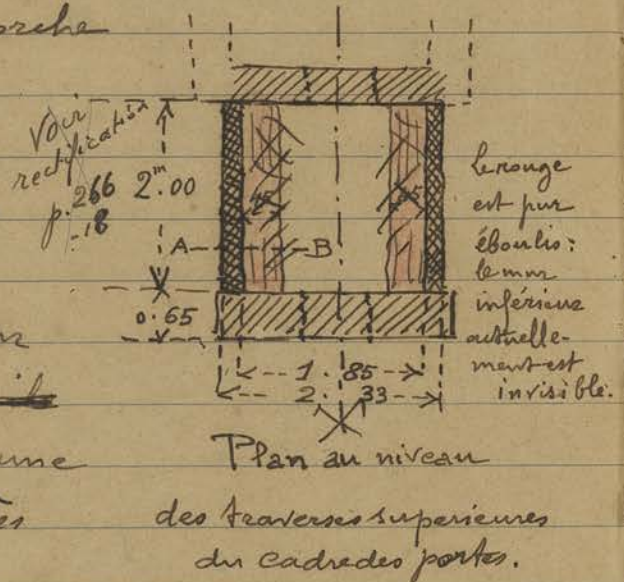 orche
Voir
rectification
p. 266
-18
2.m00
A
B
0.65
1.85
2.33
Le rouge
est pur
éboulis :
le mur
inférieur
actuelle-
ment est
invisible.
une
Plan au niveau
des traverses superieures
du cadre des portes.